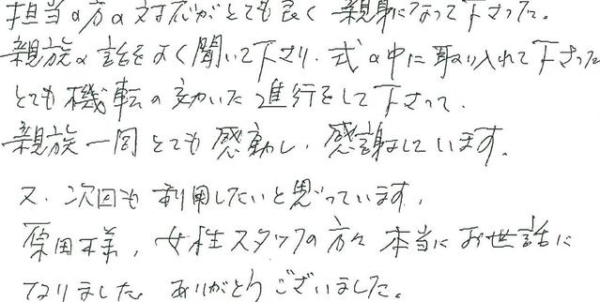 担当の方の対応がとても良く親身になって下さった。
親族の話をよく聞いて下さり、式の中に取り入れて下さった
とても機転の効いた進行をして下さって、
親族一同とても感動し、感謝しています。
又、次回も利用したいと思っています。
原田様、女性スタッフの方々本当にお世話に
なりました。ありがとうございました。